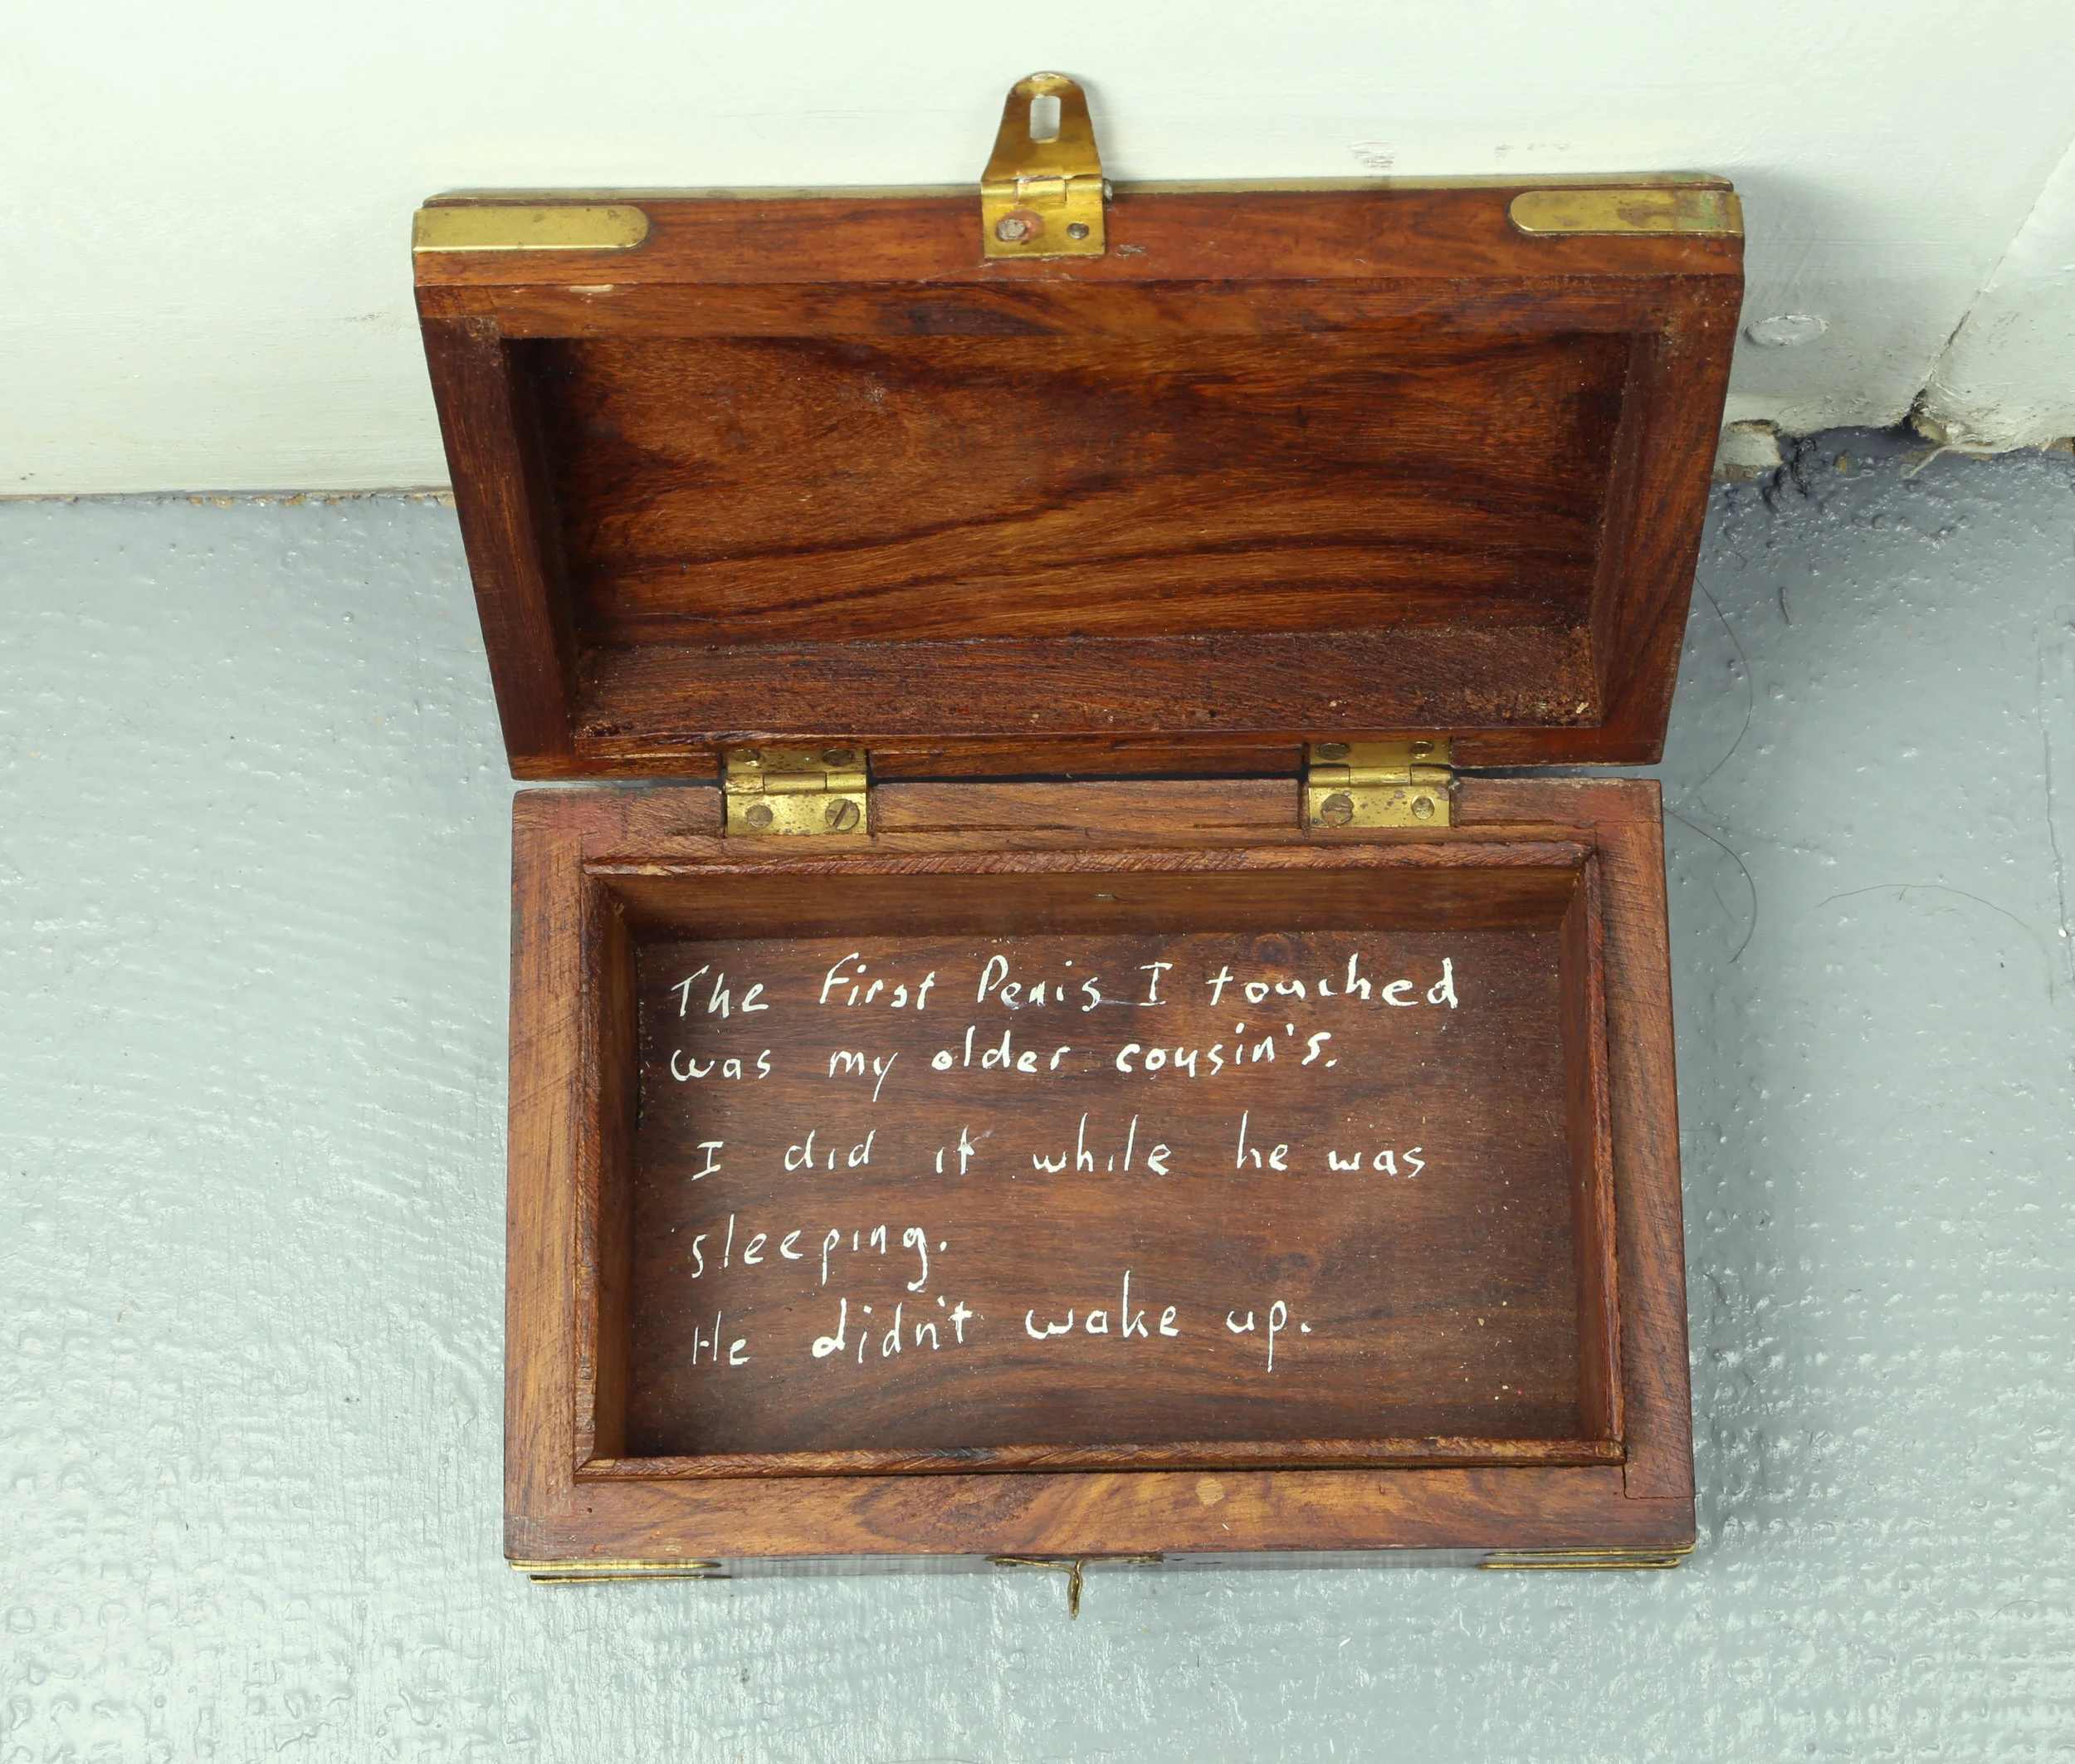 The First Penis I touched
was my older cousin's.
I did it while he was
sleeping.
He didn't wake up.